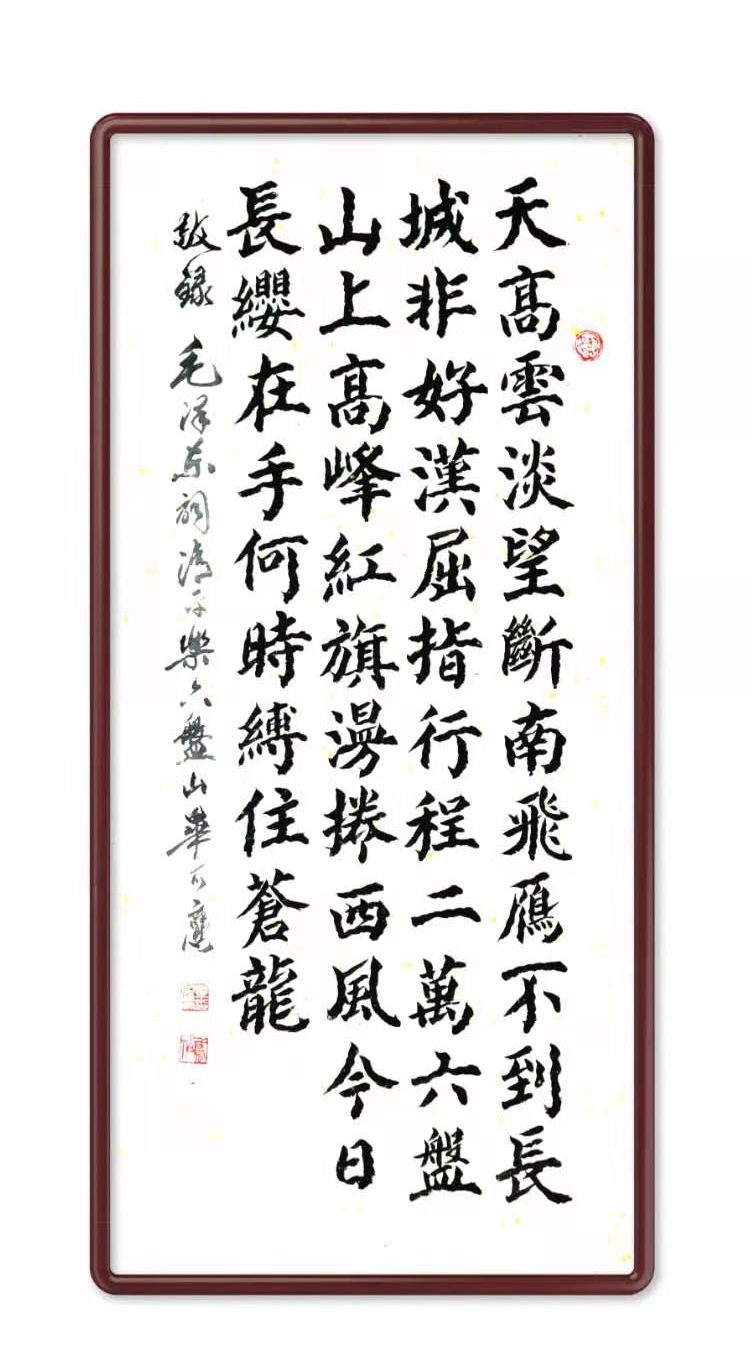 天高雲淡望斷南飛鴈不到長
城非好漢屈指行程二萬六盤
山上高峰紅旗漫捲西風今日
長纓在手何時縛住蒼龍
敬錄毛泽东词清平樂六盤山華石應